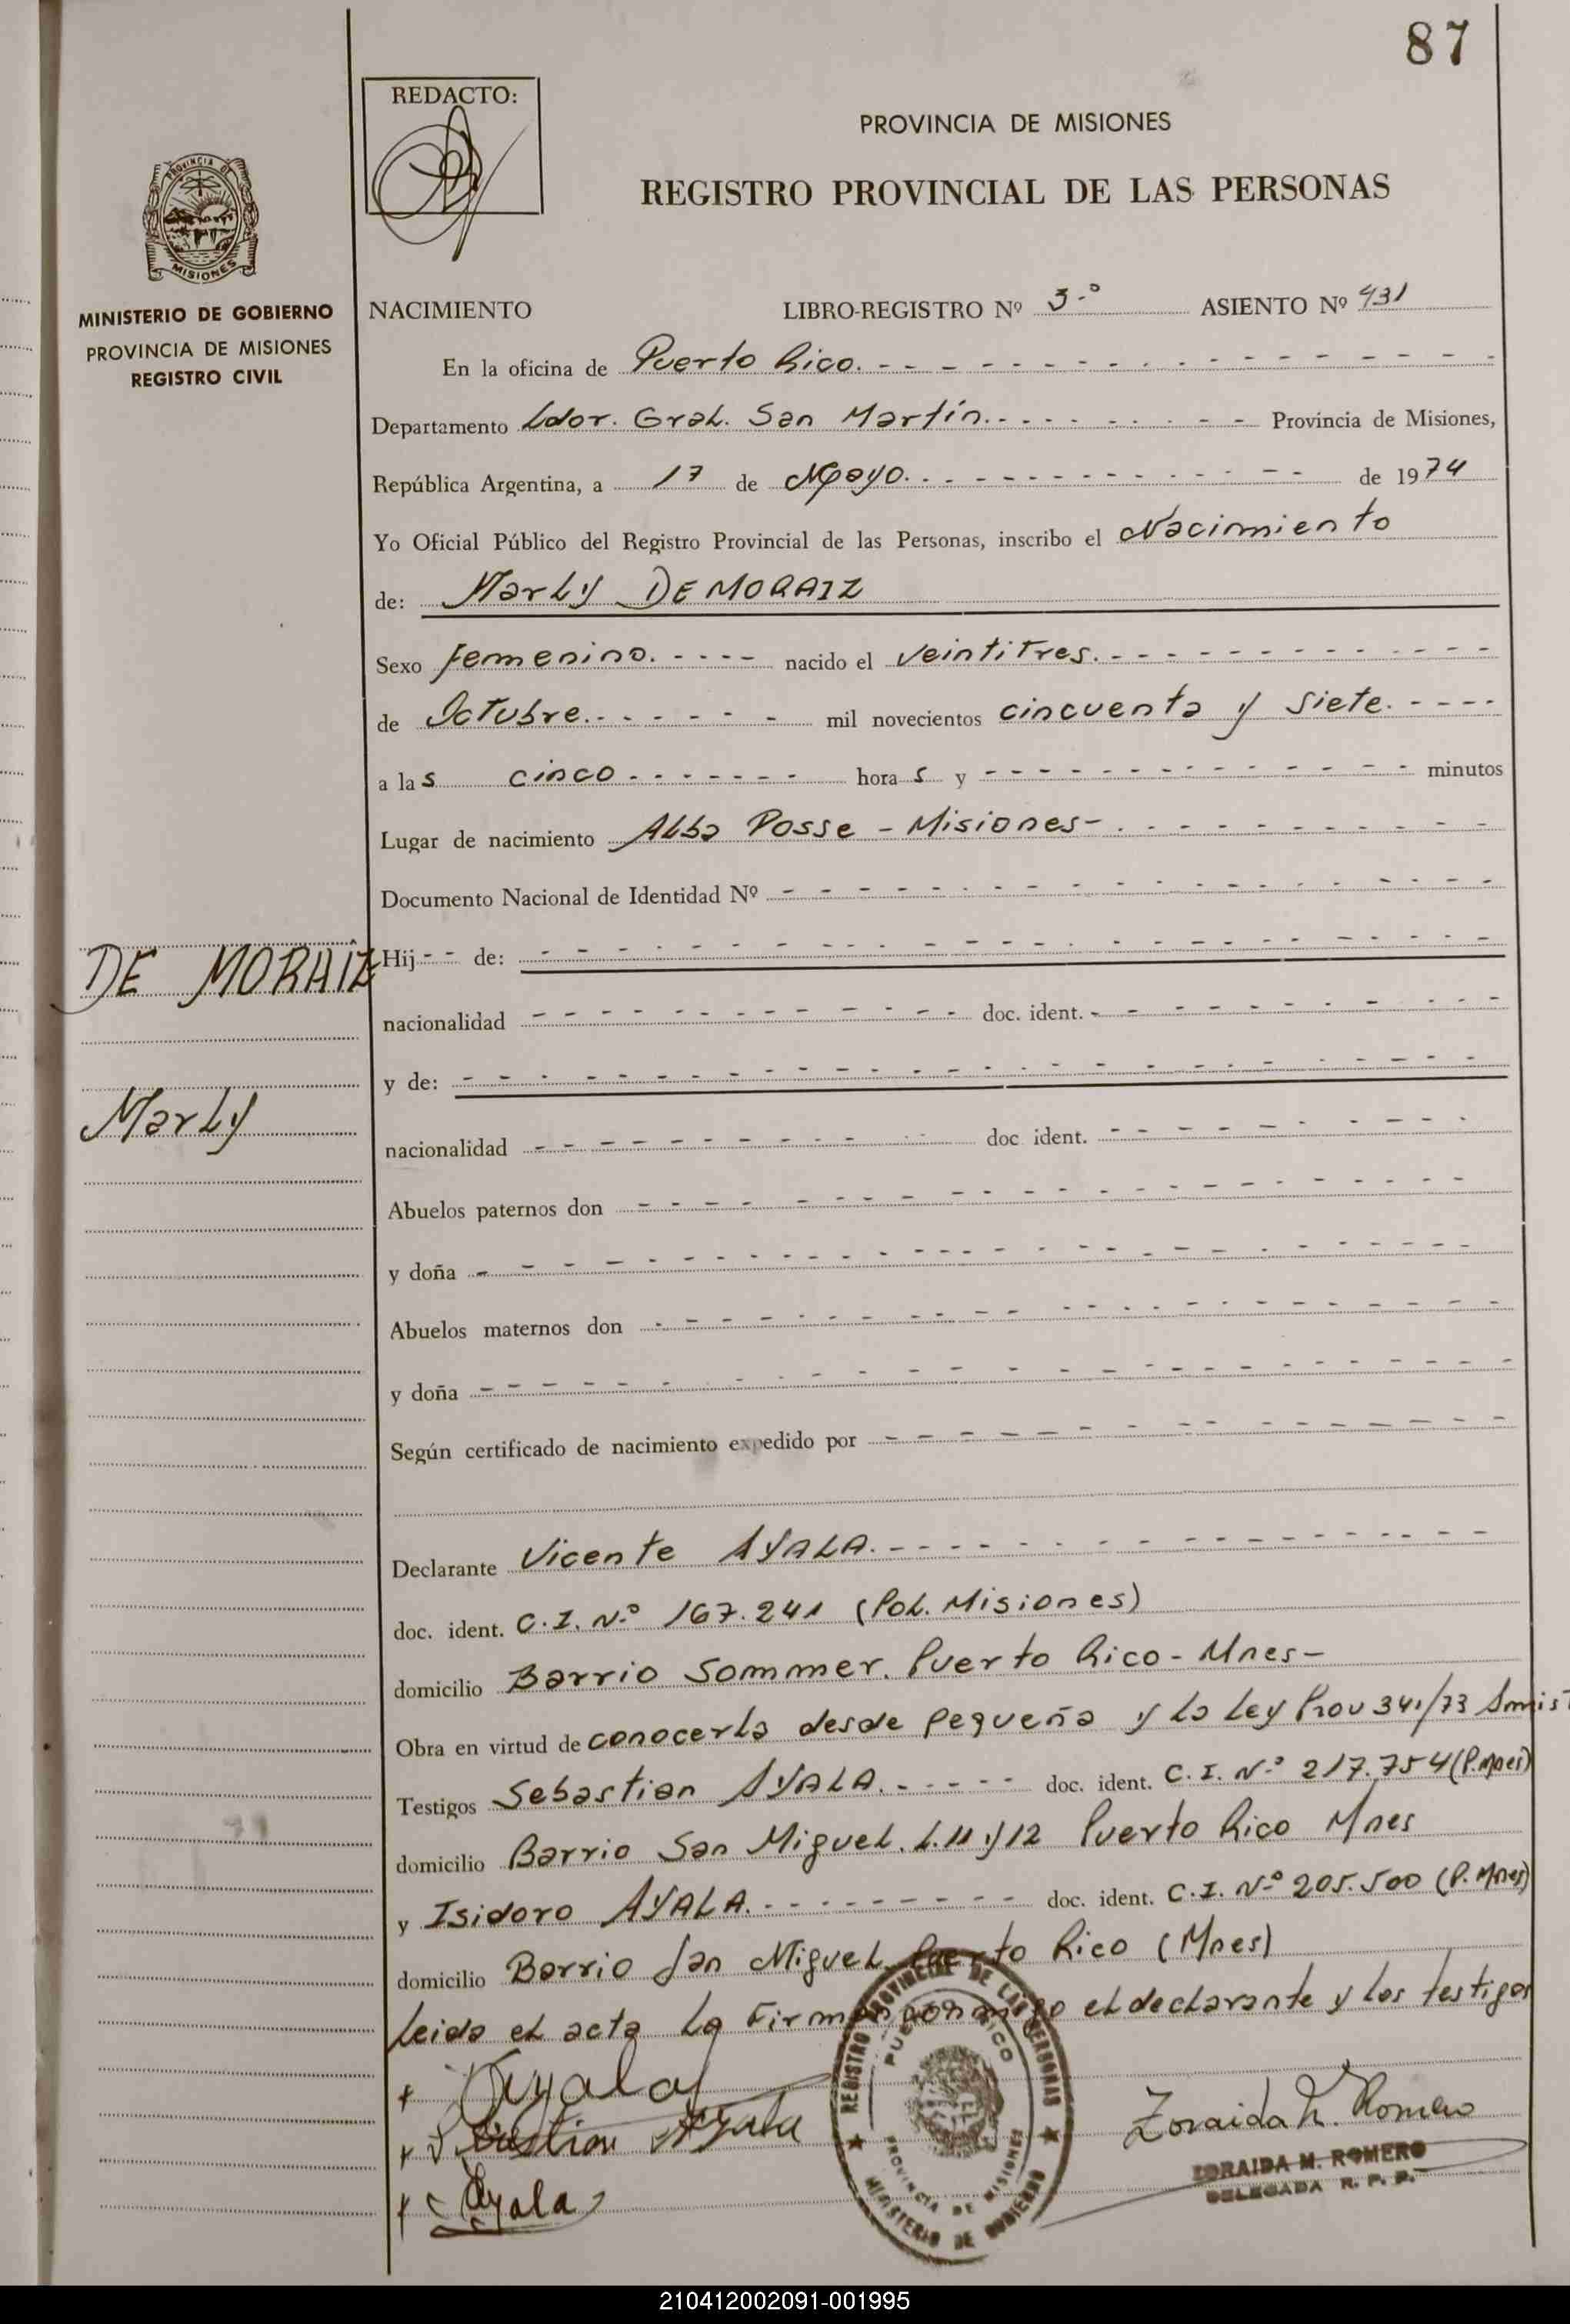 87
REDACTO:
PROVINCIA DE MISIONES
REGISTRO PROVINCIAL DE LAS PERSONAS
PROVINCIA DE
MISIONES
MINISTERIO DE GOBIERNO
PROVINCIA DE MISIONES
REGISTRO CIVIL
NACIMIENTO LIBRO-REGISTRO Nº 3.º ASIENTO Nº 431
En la oficina de Puerto Rico. - - - - - - - - - - - - - - - -
Departamento Ldor. Gral. San Martín. - - - - - - - - Provincia de Misiones,
República Argentina, a 17 de Mayo. - - - - - - - - - - - - de 1974
Yo Oficial Público del Registro Provincial de las Personas, inscribo el Nacimiento
de: Marly DE MORAIZ
Sexo femenino. - - - - nacido el veintitres. - - - - - - - - - - - -
de Octubre. - - - - - - mil novecientos cincuenta y siete. - - - -
a las cinco - - - - - - - horas y - - - - - - - - - - - - - - minutos
Lugar de nacimiento Alba Posse - Misiones - . - - - - - - - - - -
Documento Nacional de Identidad Nº - - - - - - - - - - - - - - - - -
DE MORAIZ
Hij - - de: - - - - - - - - - - - - - - - - - - - - - -
nacionalidad - - - - - - - - - - - - doc. ident. - - - - - - - - - -
y de: - - - - - - - - - - - - - - - - - - - - - - - -
Marly
nacionalidad - - - - - - - - - - doc ident. - - - - - - - - -
Abuelos paternos don - - - - - - - - - - - - - - - - - - - -
y doña - - - - - - - - - - - - - - - - - - - - - - - -
Abuelos maternos don - - - - - - - - - - - - - - - - - - - -
y doña - - - - - - - - - - - - - - - - - - - - - - - -
Según certificado de nacimiento expedido por - - - - - - - - - - - - - - -
Declarante Vicente AYALA. - - - - - - - - - - - - - - - -
doc. ident. C.I. N.º 167.241 (Pol. Misiones)
domicilio Barrio Sommer. Puerto Rico - Mnes -
Obra en virtud de conocerla desde pequeña y la Ley Prov 341/73
Testigos Sebastian AYALA. - - - - - doc. ident. C.I. N.º 217.754 (P. Mnes)
domicilio Barrio San Miguel. L. 11 y 12 Puerto Rico Mnes
y Isidoro AYALA. - - - - - - - - doc. ident. C.I. N.º 205.500 (P. Mnes)
domicilio Barrio San Miguel Puerto Rico (Mnes)
leida el acta la Firman conmigo el declarante y los testigos
+ Ayala
+ Sebastian Ayala
+ Ayala
REGISTRO PROVINCIAL DE LAS PERSONAS
PUERTO RICO
PROVINCIA DE MISIONES
MINISTERIO DE GOBIERNO
Zoraida M. Romero
ZORAIDA M. ROMERO
DELEGADA R. P. P.
210412002091-001995